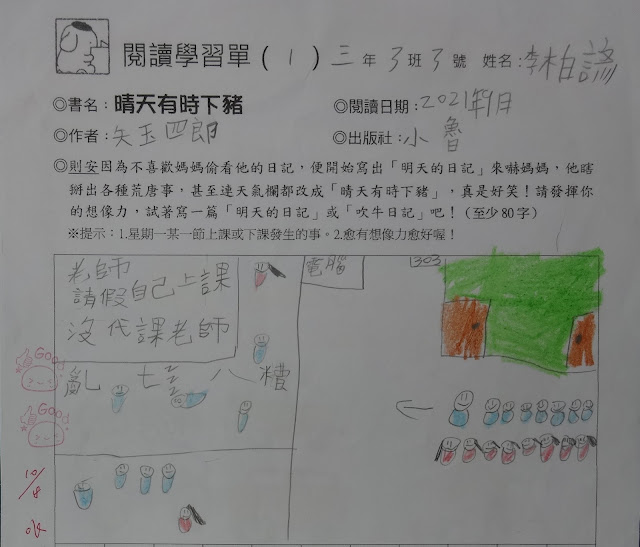 閱讀學習單（1）三年3班3號 姓名：李柏諺
◎書名：晴天有時下豬 ◎閱讀日期：2021年1月
◎作者：矢玉四郎 ◎出版社：小魯
◎則安因為不喜歡媽媽偷看他的日記，便開始寫出「明天的日記」來嚇媽媽，他瞎
掰出各種荒唐事，甚至連天氣欄都改成「晴天有時下豬」，真是好笑！請發揮你
的想像力，試著寫一篇「明天的日記」或「吹牛日記」吧！（至少80字）
※提示：1.星期一某一節上課或下課發生的事。2.愈有想像力愈好喔！
老師
請假自己上課
沒代課老師
電腦
303
亂七八糟
Good
Good